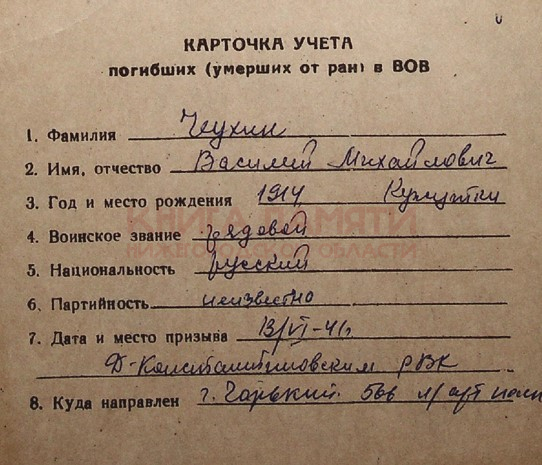 КАРТОЧКА УЧЕТА
погибших (умерших от ран) в ВОВ
1. Фамилия Чеухин
2. Имя, отчество Василий Михайлович
3. Год и место рождения 1914
КНИГА ПАМЯТИ
НИЖЕГОРОДСКОЙ ОБЛАСТИ
4. Воинское звание рядовой
5. Национальность русский
6. Партийность неизвестно
7. Дата и место призыва 13/VI-41г.
Д-Константиновским РВК
8. Куда направлен г. Горький